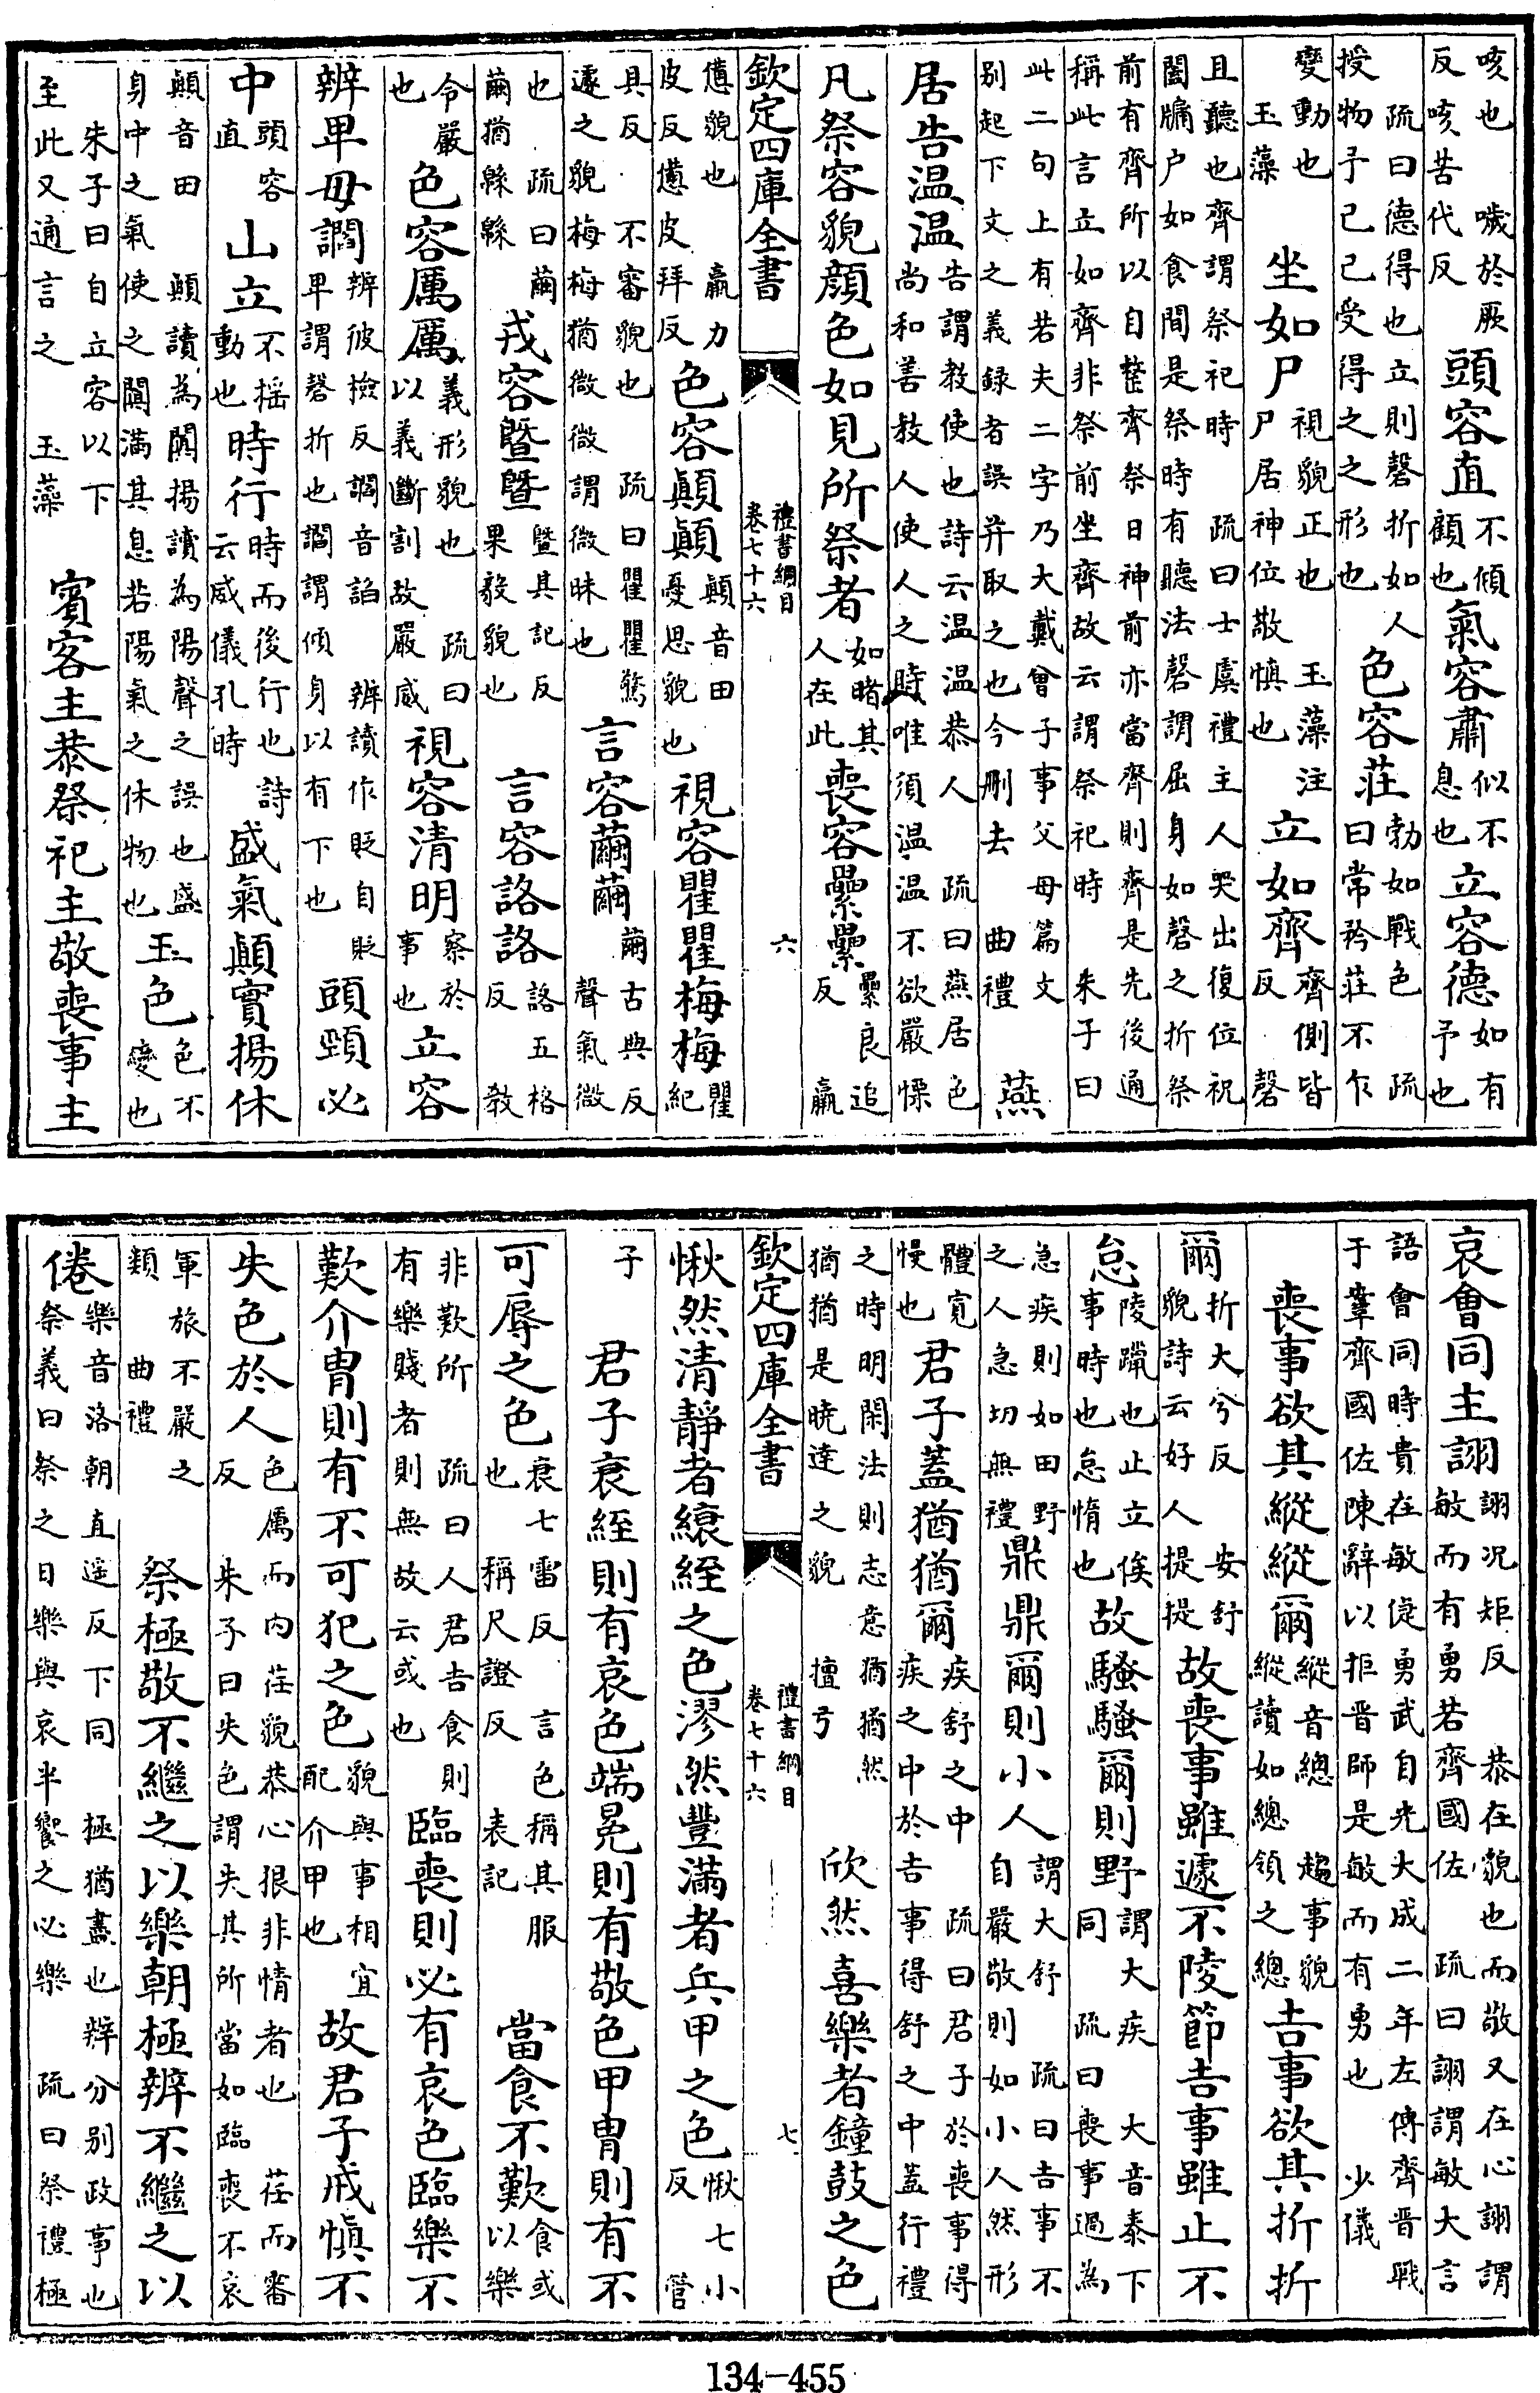 咳也 噦於厥反咳苦代反頭容直不傾顧也氣容肅似不息也立容德如有予也
疏曰德得也立則磬折如人授物予己己受得之之形也色容莊勃如戰色 疏曰常矜莊不乍
變動也 玉藻 坐如尸視貌正也 玉藻注尸居神位敬慎也立如齊齊側皆反 磬
且聽也齊謂祭祀時 疏曰士虞禮主人哭出復位祝闔牖户如食間是祭時有聽法磬謂屈身如磬之折祭
前有齊所以自整齊祭日神前亦當齊則齊是先後通稱此言立如齊非祭前坐齊故云謂祭祀時 朱子曰
此二句上有若夫二字乃大戴曾子事父母篇文别起下文之義録者誤并取之也今刪去 曲禮 燕
居告温温告謂教使也詩云温温恭人 疏曰燕居色尚和善教人使人之時唯須温温不欲嚴慄
凡祭容貌顔色如見所祭者如睹其人在此喪容纍纍纍良追反 羸
欽定四庫全書 禮書綱目 卷七十六 六
憊貌也 羸力皮反憊皮拜反色容顛顛顛音田憂思貌也視容瞿瞿梅梅瞿紀
具反 不審貌也 疏曰瞿瞿驚遽之貌梅梅猶微微謂微昧也言容繭繭繭古典反聲氣微
也 疏曰繭繭猶緜緜 戎容暨暨暨其記反果毅貌也 言容詻詻詻五格反 教
令嚴也色容厲厲義形貌也 疏曰以義斷割故嚴威視容清明察於事也立容
辨卑毋讇辨彼檢反讇音諂 辨讀作貶自貶卑謂磬折也讇謂傾身以有下也頭頸必
中頭容直山立不揺動也時行時而後行也 詩云威儀孔時盛氣顛實揚休
顛音田 顛讀為闐揚讀為陽聲之誤也盛身中之氣使之闐滿其息若陽氣之休物也玉色色不變也
朱子曰自立容以下至此又通言之 玉藻 賓客主恭祭祀主敬喪事主
哀會同主詡詡况矩反 恭在貌也而敬又在心詡謂敏而有勇若齊國佐 疏曰詡謂敏大言
語會同時貴在敏倢勇武自光大成二年左傳齊晋戰于鞌齊國佐陳辭以拒晋師是敏而有勇也 少儀
喪事欲其縱縱爾縱音總 趨事貌縱讀如總領之總吉事欲其折折
爾折大兮反 安舒貌詩云好人提提故喪事雖遽不陵節吉事雖止不
怠陵躐也止立俟事時也怠惰也故騷騷爾則野謂大疾 大音泰下同 疏曰喪事過為
急疾則如田野之人急切無禮鼎鼎爾則小人謂大舒 疏曰吉事不自嚴敬則如小人然形
體寛慢也君子蓋猶猶爾疾舒之中 疏曰君子於喪事得疾之中於吉事得舒之中蓋行禮
之時明閑法則志意猶猶然猶猶是曉達之貌 檀弓 欣然喜樂者鐘鼓之色
欽定四庫全書 禮書綱目 卷七十六 七
愀然清靜者縗絰之色漻然豐滿者兵甲之色愀七小反 管
子 君子衰絰則有哀色端冕則有敬色甲冑則有不
可辱之色衰七雷反 言色稱其服也 稱尺證反 表記 當食不歎食或以樂
非歎所 疏曰人君吉食則有樂賤者則無故云或也臨喪則必有哀色臨樂不
歎介冑則有不可犯之色貌與事相宜配介甲也故君子戒愼不
失色於人色厲而内荏貌恭心狠非情者也 荏而審反 朱子曰失色謂失其所當如臨喪不哀
軍旅不嚴之類 曲禮 祭極敬不繼之以樂朝極辨不繼之以
倦樂音洛朝直遥反下同 極猶盡也辨分别政事也祭義曰祭之日樂與哀半饗之必樂 疏曰祭禮極
134-455